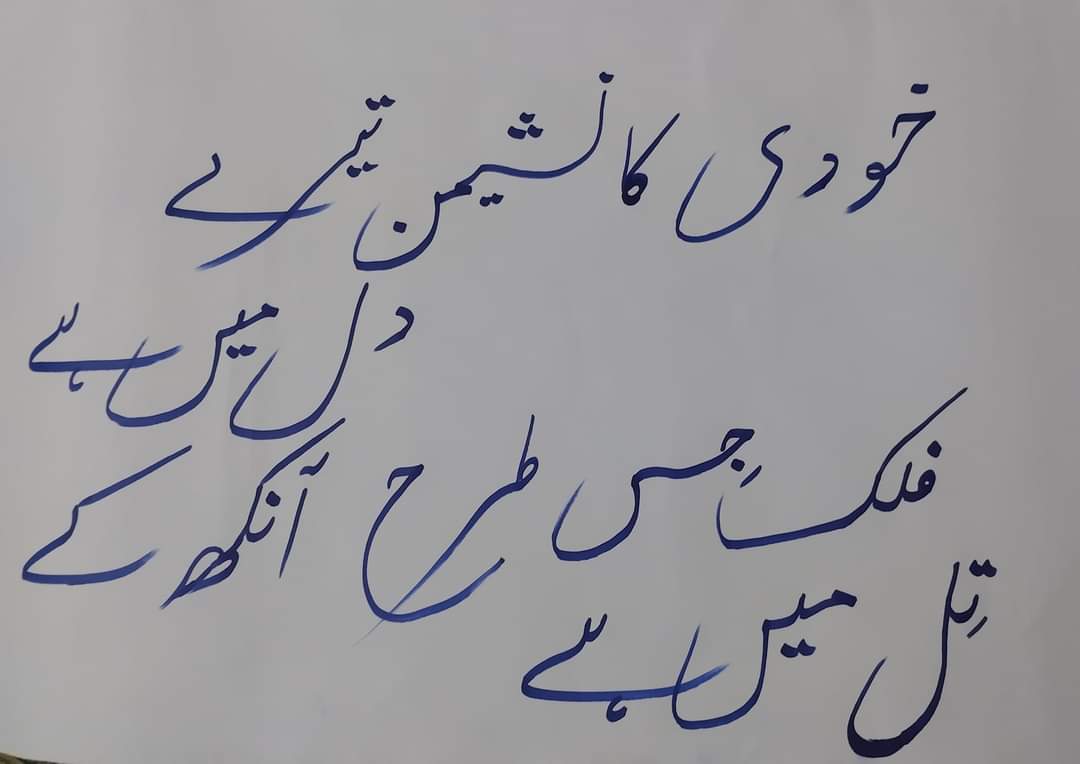 خودی کا نشیمن تیرے
دل میں ہے
فلک جِس طرح آنکھ کے
تِل میں ہے